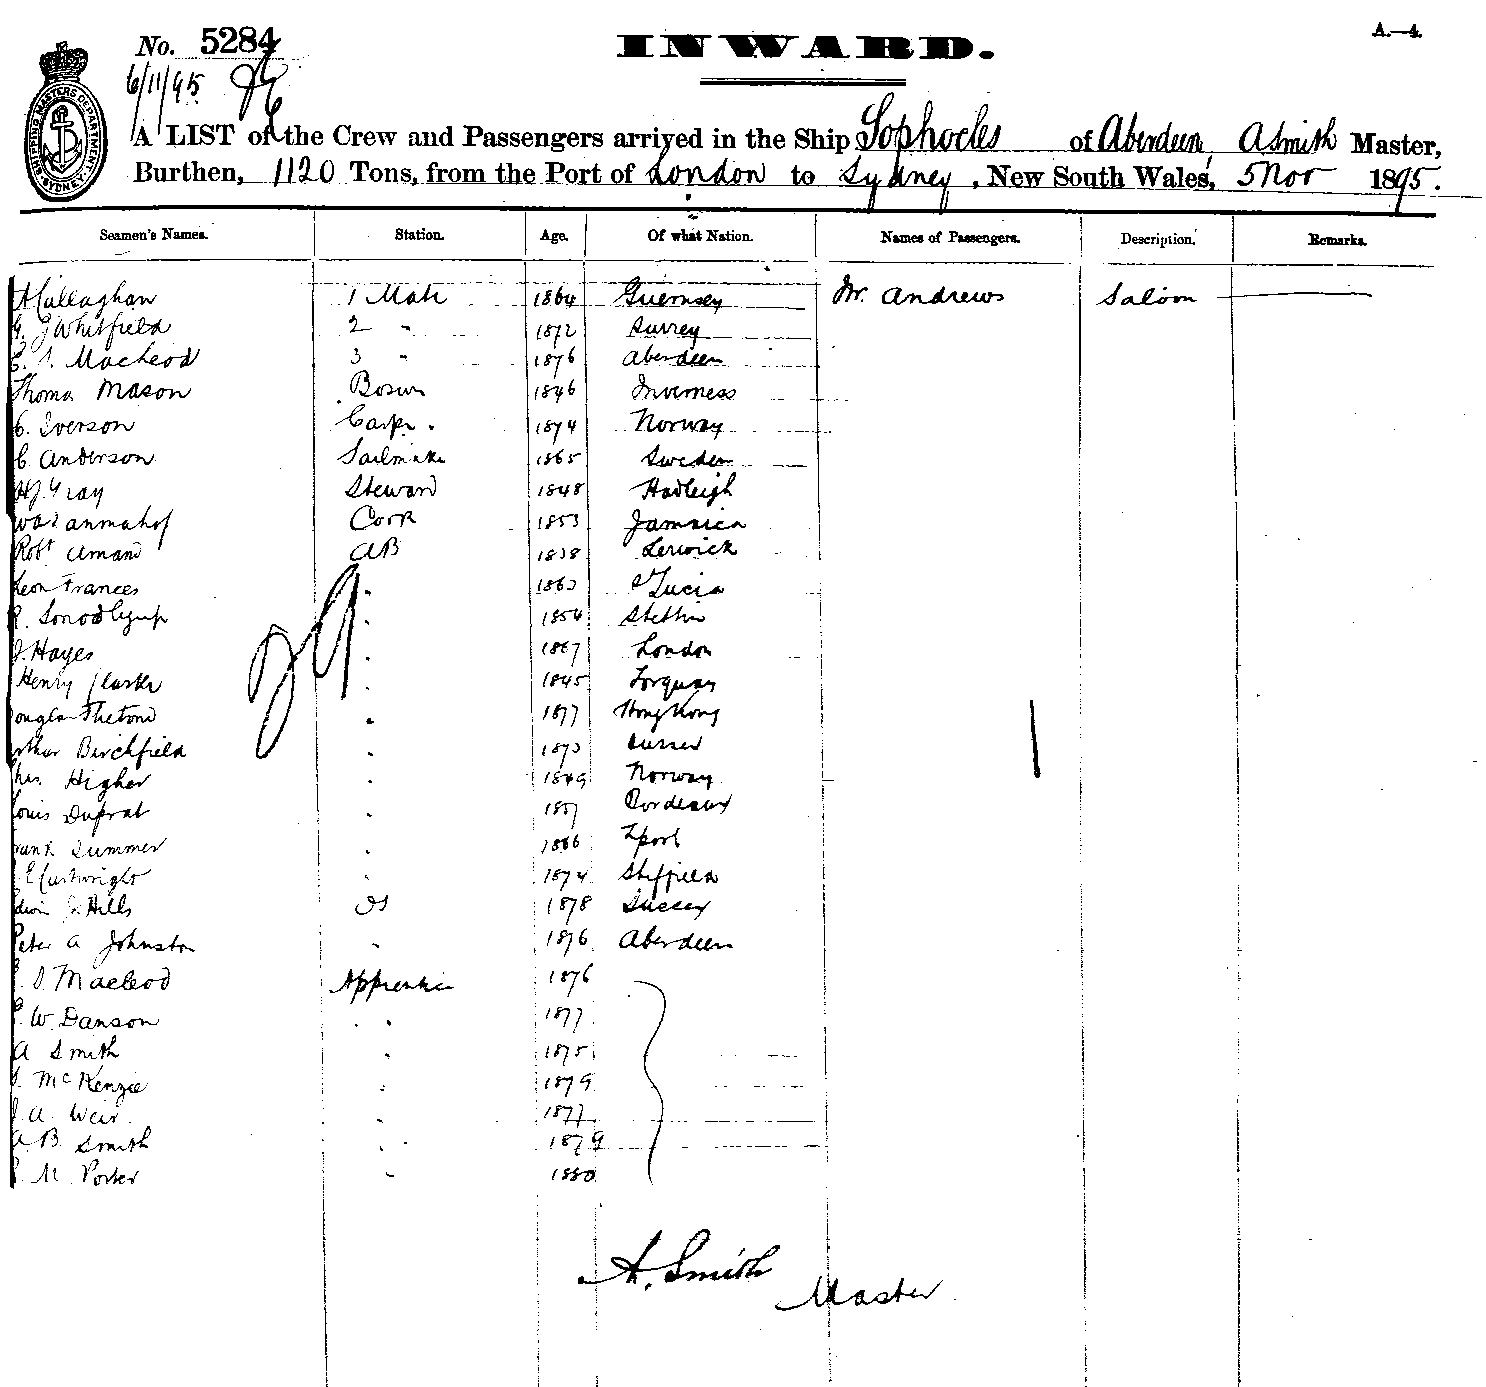 No. 5284
INWARD.
A.—4.
6/11/95
SHIPPING MASTERS DEPARTMENT SYDNEY
A LIST of the Crew and Passengers arrived in the Ship Sophocles of Aberdeen, A Smith Master,
Burthen, 1120 Tons, from the Port of London to Sydney, New South Wales, 5 Nov 1895.
Seamen's Names. Station. Age. Of what Nation. Names of Passengers. Description. Remarks.
A Callaghan 1 Mate 1864 Guernsey Mr. Andrews Saloon
G. J Whitfield 2 " 1872 Surrey
Macleod 3 " 1876 Aberdeen
Thomas Mason Bosun 1846 Inverness
C. Iverson Carpr. 1874 Norway
C. Anderson Sailmaker 1865 Sweden
H J. Gray Steward 1848 Hadleigh
Cook 1853 Jamaica
Robt Amand AB 1838 Lerwick
Leon Frances " 1863 St Lucia
R. " 1854 Stettin
J. Hayes " 1867 London
Henry Clarke " 1845 Torquay
" 1877 Hong Kong
Arthur Birchfield " 1873
Chas. Higher " 1849 Norway
Louis Duprat " 1857 Bordeaux
Frank Summer " 1866 Lpool
E Cartwright " 1874 Sheffield
Edwin J. Hills OS 1878 Sussex
Peter A Johnston " 1876 Aberdeen
Macleod Apprentice 1876
W. Danson " " 1877
A Smith " 1875
McKenzie " 1879
A. Weir " 1877
A B Smith " 1879
M Porter " 1880
29
A. Smith
Master